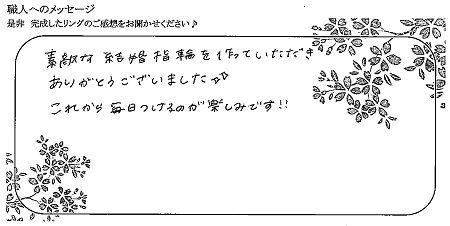 職人へのメッセージ
是非 完成したリングのご感想をお聞かせください♪
素敵な 結婚指輪を作っていただき
ありがとうございました♡
これから毎日つけるのが楽しみです!!